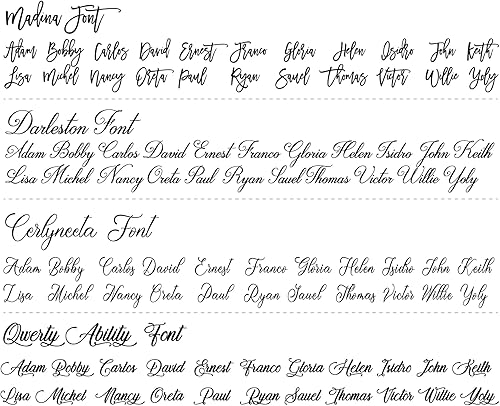 Madina Font
Adam Bobby Carlos David Ernest Franco Gloria Helen Isidro John Keith
Lisa Michel Nancy Oreta Paul Ryan Sauel Thomas Victor Willie Yoly
Darleston Font
Adam Bobby Carlos David Ernest Franco Gloria Helen Isidro John Keith
Lisa Michel Nancy Oreta Paul Ryan Sauel Thomas Victor Willie Yoly
Cerlyneeta Font
Adam Bobby Carlos David Ernest Franco Gloria Helen Isidro John Keith
Lisa Michel Nancy Oreta Paul Ryan Sauel Thomas Victor Willie Yoly
Qwerty Ability Font
Adam Bobby Carlos David Ernest Franco Gloria Helen Isidro John Keith
Lisa Michel Nancy Oreta Paul Ryan Sauel Thomas Victor Willie Yoly